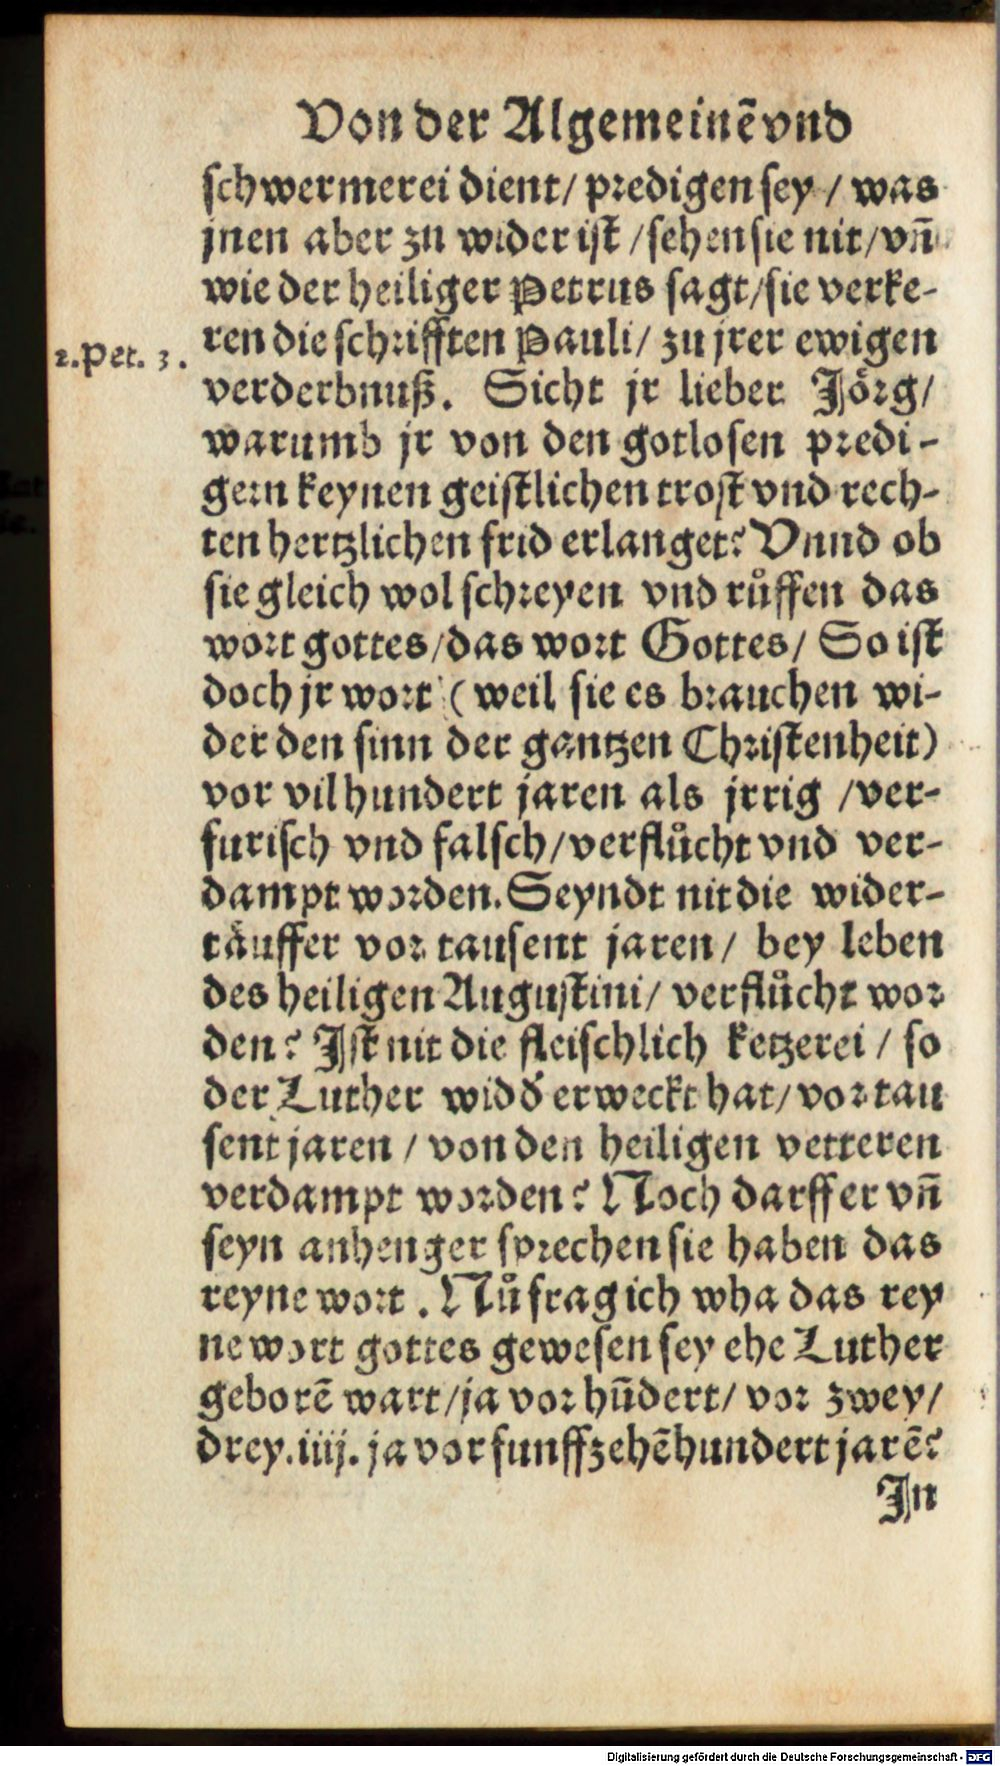 Von der Algemeinē vnd
schwermerei dient/ predigen sey / was
jnen aber zu wider ist /sehen sie nit/vñ
wie der heiliger Petrus sagt/sie verke-
ren die schrifften Pauli/ zu jrer ewigen
2.Pet. 3.
verderbnuß. Sicht jr lieber Jörg/
warumb jr von den gotlosen predi-
gern keynen geistlichen trost vnd rech-
ten hertzlichen frid erlanget? Vnnd ob
sie gleich wol schreyen vnd růffen das
wort gottes/das wort Gottes/ So ist
doch jr wort (weil sie es brauchen wi-
der den sinn der gantzen Christenheit)
vor vil hundert jaren als jrrig /ver-
furisch vnd falsch/verflůcht vnd ver-
dampt worden. Seyndt nit die wider-
täuffer vor tausent jaren/ bey leben
des heiligen Augustini/ verflůcht wor
den? Ist nit die fleischlich ketzerei / so
der Luther widď erweckt hat/ vor tau
sent jaren / von den heiligen vetteren
verdampt worden? Noch darff er vñ
seyn anhenger sprechen sie haben das
reyne wort . Nů frag ich wha das rey
ne wort gottes gewesen sey ehe Luther
geborē wart/ja vor hūdert/ vor zwey/
drey.iiij. ja vor funffzehēhundert jarē?
In
Digitalisierung gefördert durch die Deutsche Forschungsgemeinschaft - DFG